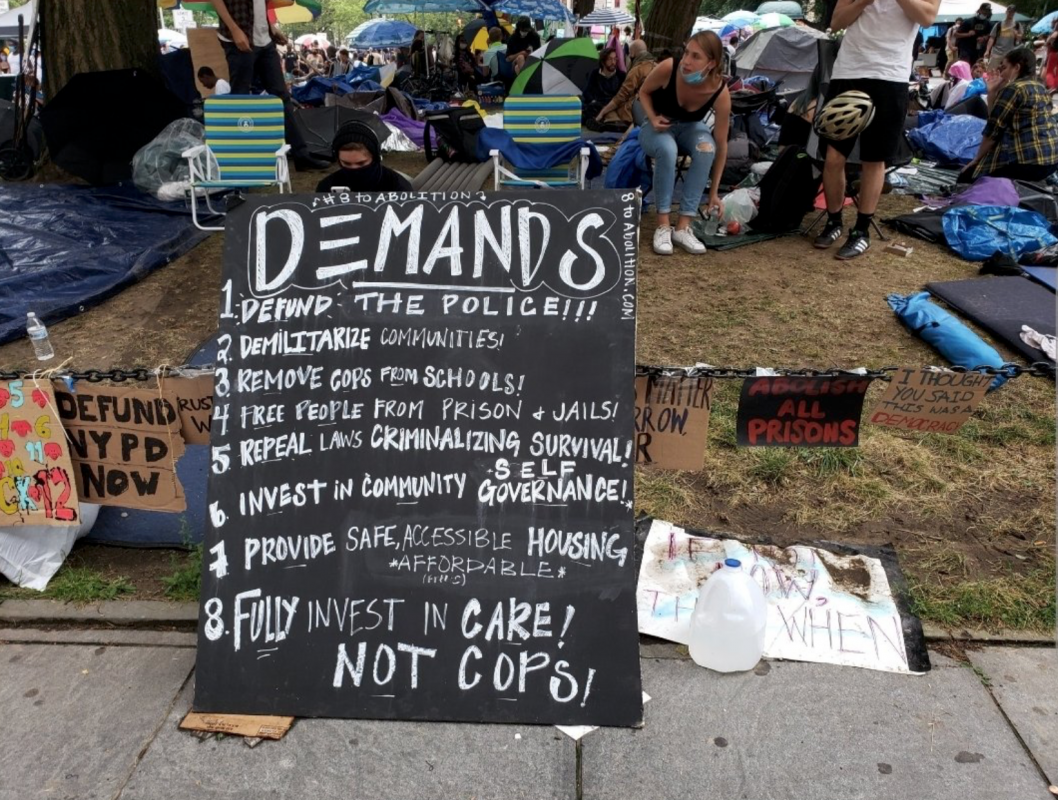 #8 TO ABOLITION
8 to Abolition.com
DEMANDS
1. DEFUND THE POLICE!!!
2. DEMILITARIZE COMMUNITIES!
3 REMOVE COPS FROM SCHOOLS!
4 FREE PEOPLE FROM PRISON & JAILS!
5. REPEAL LAWS CRIMINALIZING SURVIVAL!
6. INVEST in COMMUNITY SELF
GOVERNANCE!
7 PROVIDE SAFE, ACCESSIBLE HOUSING
*AFFORDABLE*
8. FULLY INVEST IN CARE!
NOT COPS!
DEFUND
NYPD
NOW
MATTER
ABOLISH
ALL
PRISONS
I THOUGHT
YOU SAID
THIS WAS A
DEMOCRACY
WHEN